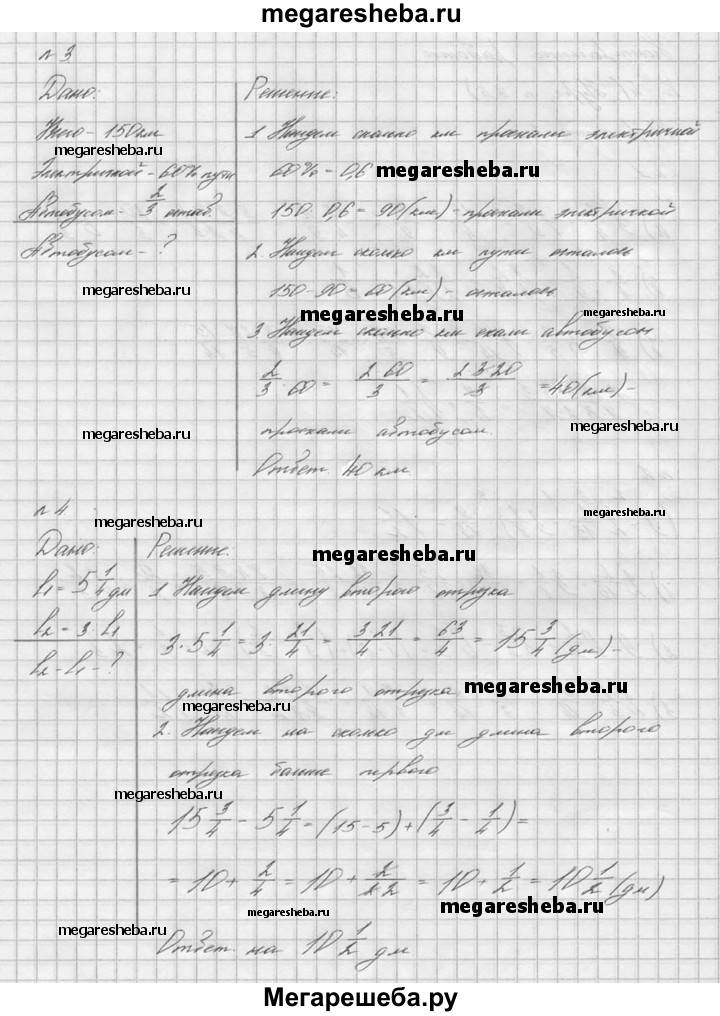 megaresheba.ru
№ 3
Дано: Решение:
Всего - 150км 1 Найдем сколько км проехали электричкой
megaresheba.ru
Электричкой - 60% пути 60% = 0,6 megaresheba.ru
Автобусом - 2/3 остав. ? 150 · 0,6 = 90(км) - проехали электричкой
Автобусом - ? 2. Найдем сколько км пути осталось
megaresheba.ru 150-90 = 60(км) - осталось
megaresheba.ru megaresheba.ru
3 Найдем сколько км ехали автобусом
2/3 · 60 = 2 60/3 = 2 3 20/3 = 40(км) -
megaresheba.ru проехали автобусом. megaresheba.ru
Ответ. 40 км
№ 4 megaresheba.ru
megaresheba.ru
Дано: Решение: megaresheba.ru
l₁ = 5 1/4 дм 1 Найдем длину второго отрезка
l₂ = 3 · l₁ 3 · 5 1/4 = 3 · 21/4 = 3 21/4 = 63/4 = 15 3/4 (дм) -
l₂ - l₁ - ?
длина второго отрезка megaresheba.ru
megaresheba.ru
2. Найдем на сколько дм длина второго
отрезка больше первого
megaresheba.ru
15 3/4 - 5 1/4 = (15-5) + (3/4 - 1/4) =
= 10 + 2/4 = 10 + 2/2 2 = 10 + 1/2 = 10 1/2 (дм)
megaresheba.ru megaresheba.ru
megaresheba.ru
Ответ. на 10 1/2 дм
Мегарешеба.ру